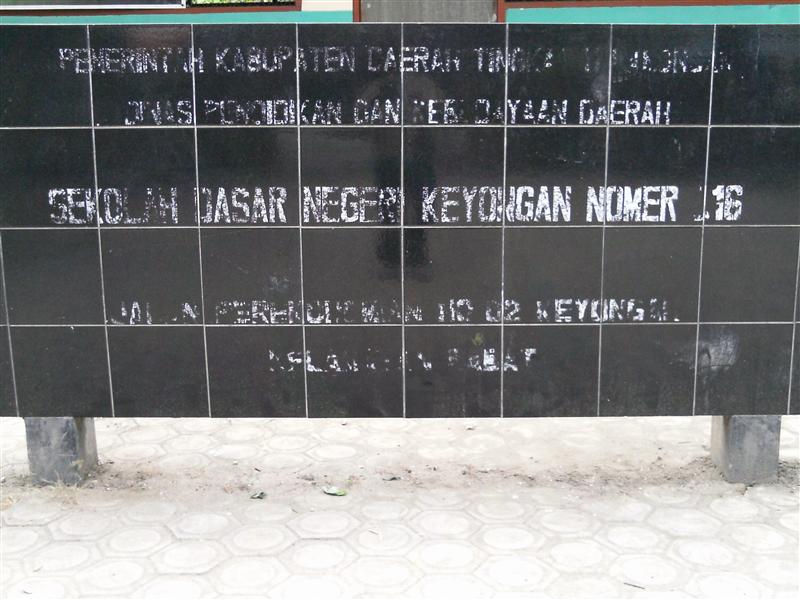 PEMERINTAH KABUPATEN DAERAH TINGKAT II
DINAS PENDIDIKAN DAN KEBUDAYAAN DAERAH
SEKOLAH DASAR NEGERI KEYONGAN NOMER 116
JALAN NO 02 KEYONGAN
BABAT